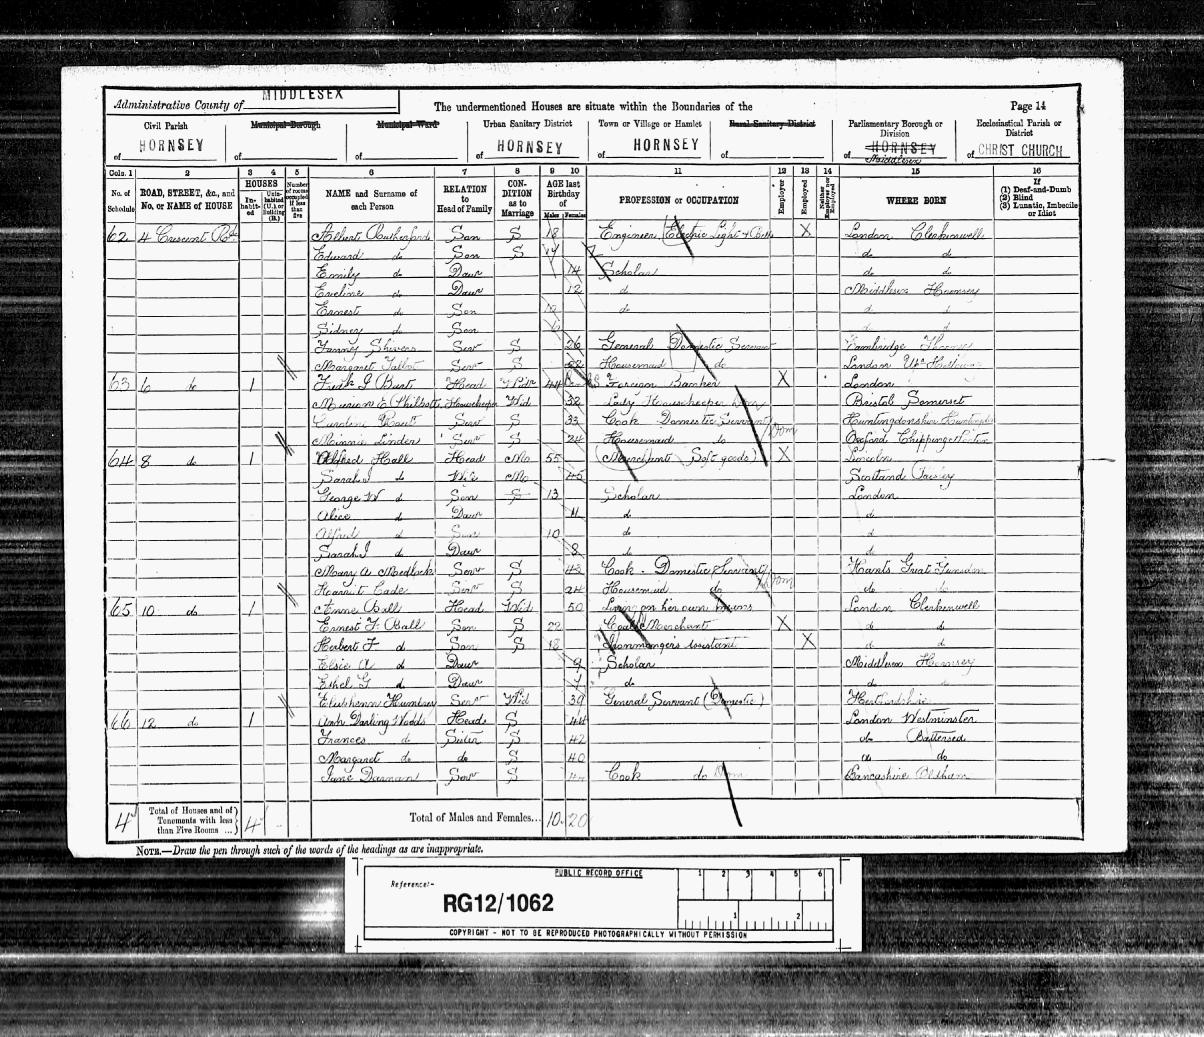 Administrative County of MIDDLESEX The undermentioned Houses are situate within the Boundaries of the Page 14
Civil Parish Municipal Borough Municipal Ward Urban Sanitary District Town or Village or Hamlet Rural Sanitary District Parliamentary Borough or Division Ecclesiastical Parish or District
of HORNSEY of of of HORNSEY of HORNSEY of of HORNSEY Middlesex of CHRIST CHURCH
Cols. 1 2 3 4 5 6 7 8 9 10 11 12 13 14 15 16
No. of Schedule ROAD, STREET, &c., and No. or NAME of HOUSE HOUSES Inhabited Uninhabited (U.) or Building (B.) Number of rooms occupied if less than five NAME and Surname of each Person RELATION to Head of Family CONDITION as to Marriage AGE last Birthday of Males Females PROFESSION or OCCUPATION Employer Employed Neither Employer nor Employed WHERE BORN If (1) Deaf-and-Dumb (2) Blind (3) Lunatic, Imbecile or Idiot
62 4 Crescent Rd Albert Rutherford Son S 18 Engineer Electric Light & X London Clerkenwell
Edward do Son S 17 do do
Emily do Daur 14 Scholar do do
Eveline do Daur 12 do Middlesex Hornsey
Ernest do Son do d d
Sidney do Son d d
Fanny Shivers Serv S 26 General Domestic Servant Cambridge
Margaret Talbot Serv S 22 Housemaid do London
63 6 do 1 J Burt Head Widr 44 Foreign Banker X London
E Philbott Housekeeper Wid 32 Lady Housekeeper Dom Bristol Somerset
Caroline Serv S 33 Cook Domestic Servant Huntingdonshire
Minnie Linder Serv S 24 Housemaid do Dom Oxford Chipping Norton
64 8 do 1 Alfred Hall Head M 55 (Merchant Soft goods) X Lincoln
Sarah J do Wife M 45 Scotland Paisley
George W d Son S 13 Scholar London
Alice d Daur 11 do d
Alfred d Son 10 do d
Sarah J do Daur 8 do d
Mary A Medlock Serv S 43 Cook - Domestic Servant Hants Great
Harriet Cade Serv S 24 Housemaid do Dom do do
65 10 do 1 Anne Ball Head Wid 50 Living on her own means London Clerkenwell
Ernest F. Ball Son S 22 Coal Merchant X d d
Herbert F d Son S 18 Ironmongers assistant X d d
Elsie A d Daur 9 Scholar Middlesex Hornsey
Ethel G d Daur 7 do d do
Serv Wid 39 General Servant (Domestic) Hertfordshire
66 12 do 1 Ann Darling Head S 44 London Westminster
Frances do Sister S 42 do Battersea
Margaret do do S 40 do do
Jane Serv S Cook do Dom Lancashire Oldham
4 Total of Houses and of Tenements with less than Five Rooms ... 4 Total of Males and Females... 10 20
NOTE.—Draw the pen through such of the words of the headings as are inappropriate.
PUBLIC RECORD OFFICE 1 2 3 4 5 6
Reference:-
RG12/1062 1 2
COPYRIGHT - NOT TO BE REPRODUCED PHOTOGRAPHICALLY WITHOUT PERMISSION